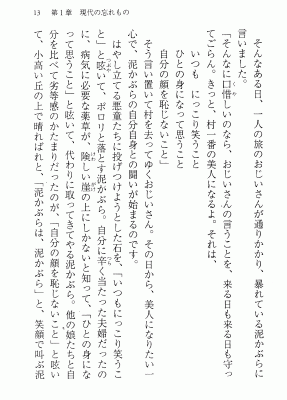 13　第１章　現代の忘れもの
そんなある日、一人の旅のおじいさんが通りかかり、暴れている泥かぶらに
言いました。
「そんなに口惜しいのなら、おじいさんの言うことを、来る日も来る日も守っ
てごらん。きっと、村一番の美人になるよ。それは、
いつも　にっこり笑うこと
ひとの身になって思うこと
自分の顔を恥じないこと」
そう言い置いて村を去ってゆくおじいさん。その日から、美人になりたい一
心で、泥かぶらの自分自身との闘いが始まるのです。
はやし立てる悪童たちに投げつけようとした石を、「いつもにっこり笑うこ
と」と呟いて、ポロリと落とす泥かぶら。自分に辛く当たった夫婦だったの
に、病気に必要な薬草が、険しい崖の上にしかないと知って、「ひとの身にな
って思うこと」と呟いて、代わりに取ってきてやる泥かぶら。他の娘たちと自
分を比べて劣等感のかたまりだったのが、「自分の顔を恥じないこと」と呟い
て、小高い丘の上で晴ればれと、「泥かぶらは、泥かぶら」と、笑顔で叫ぶ泥